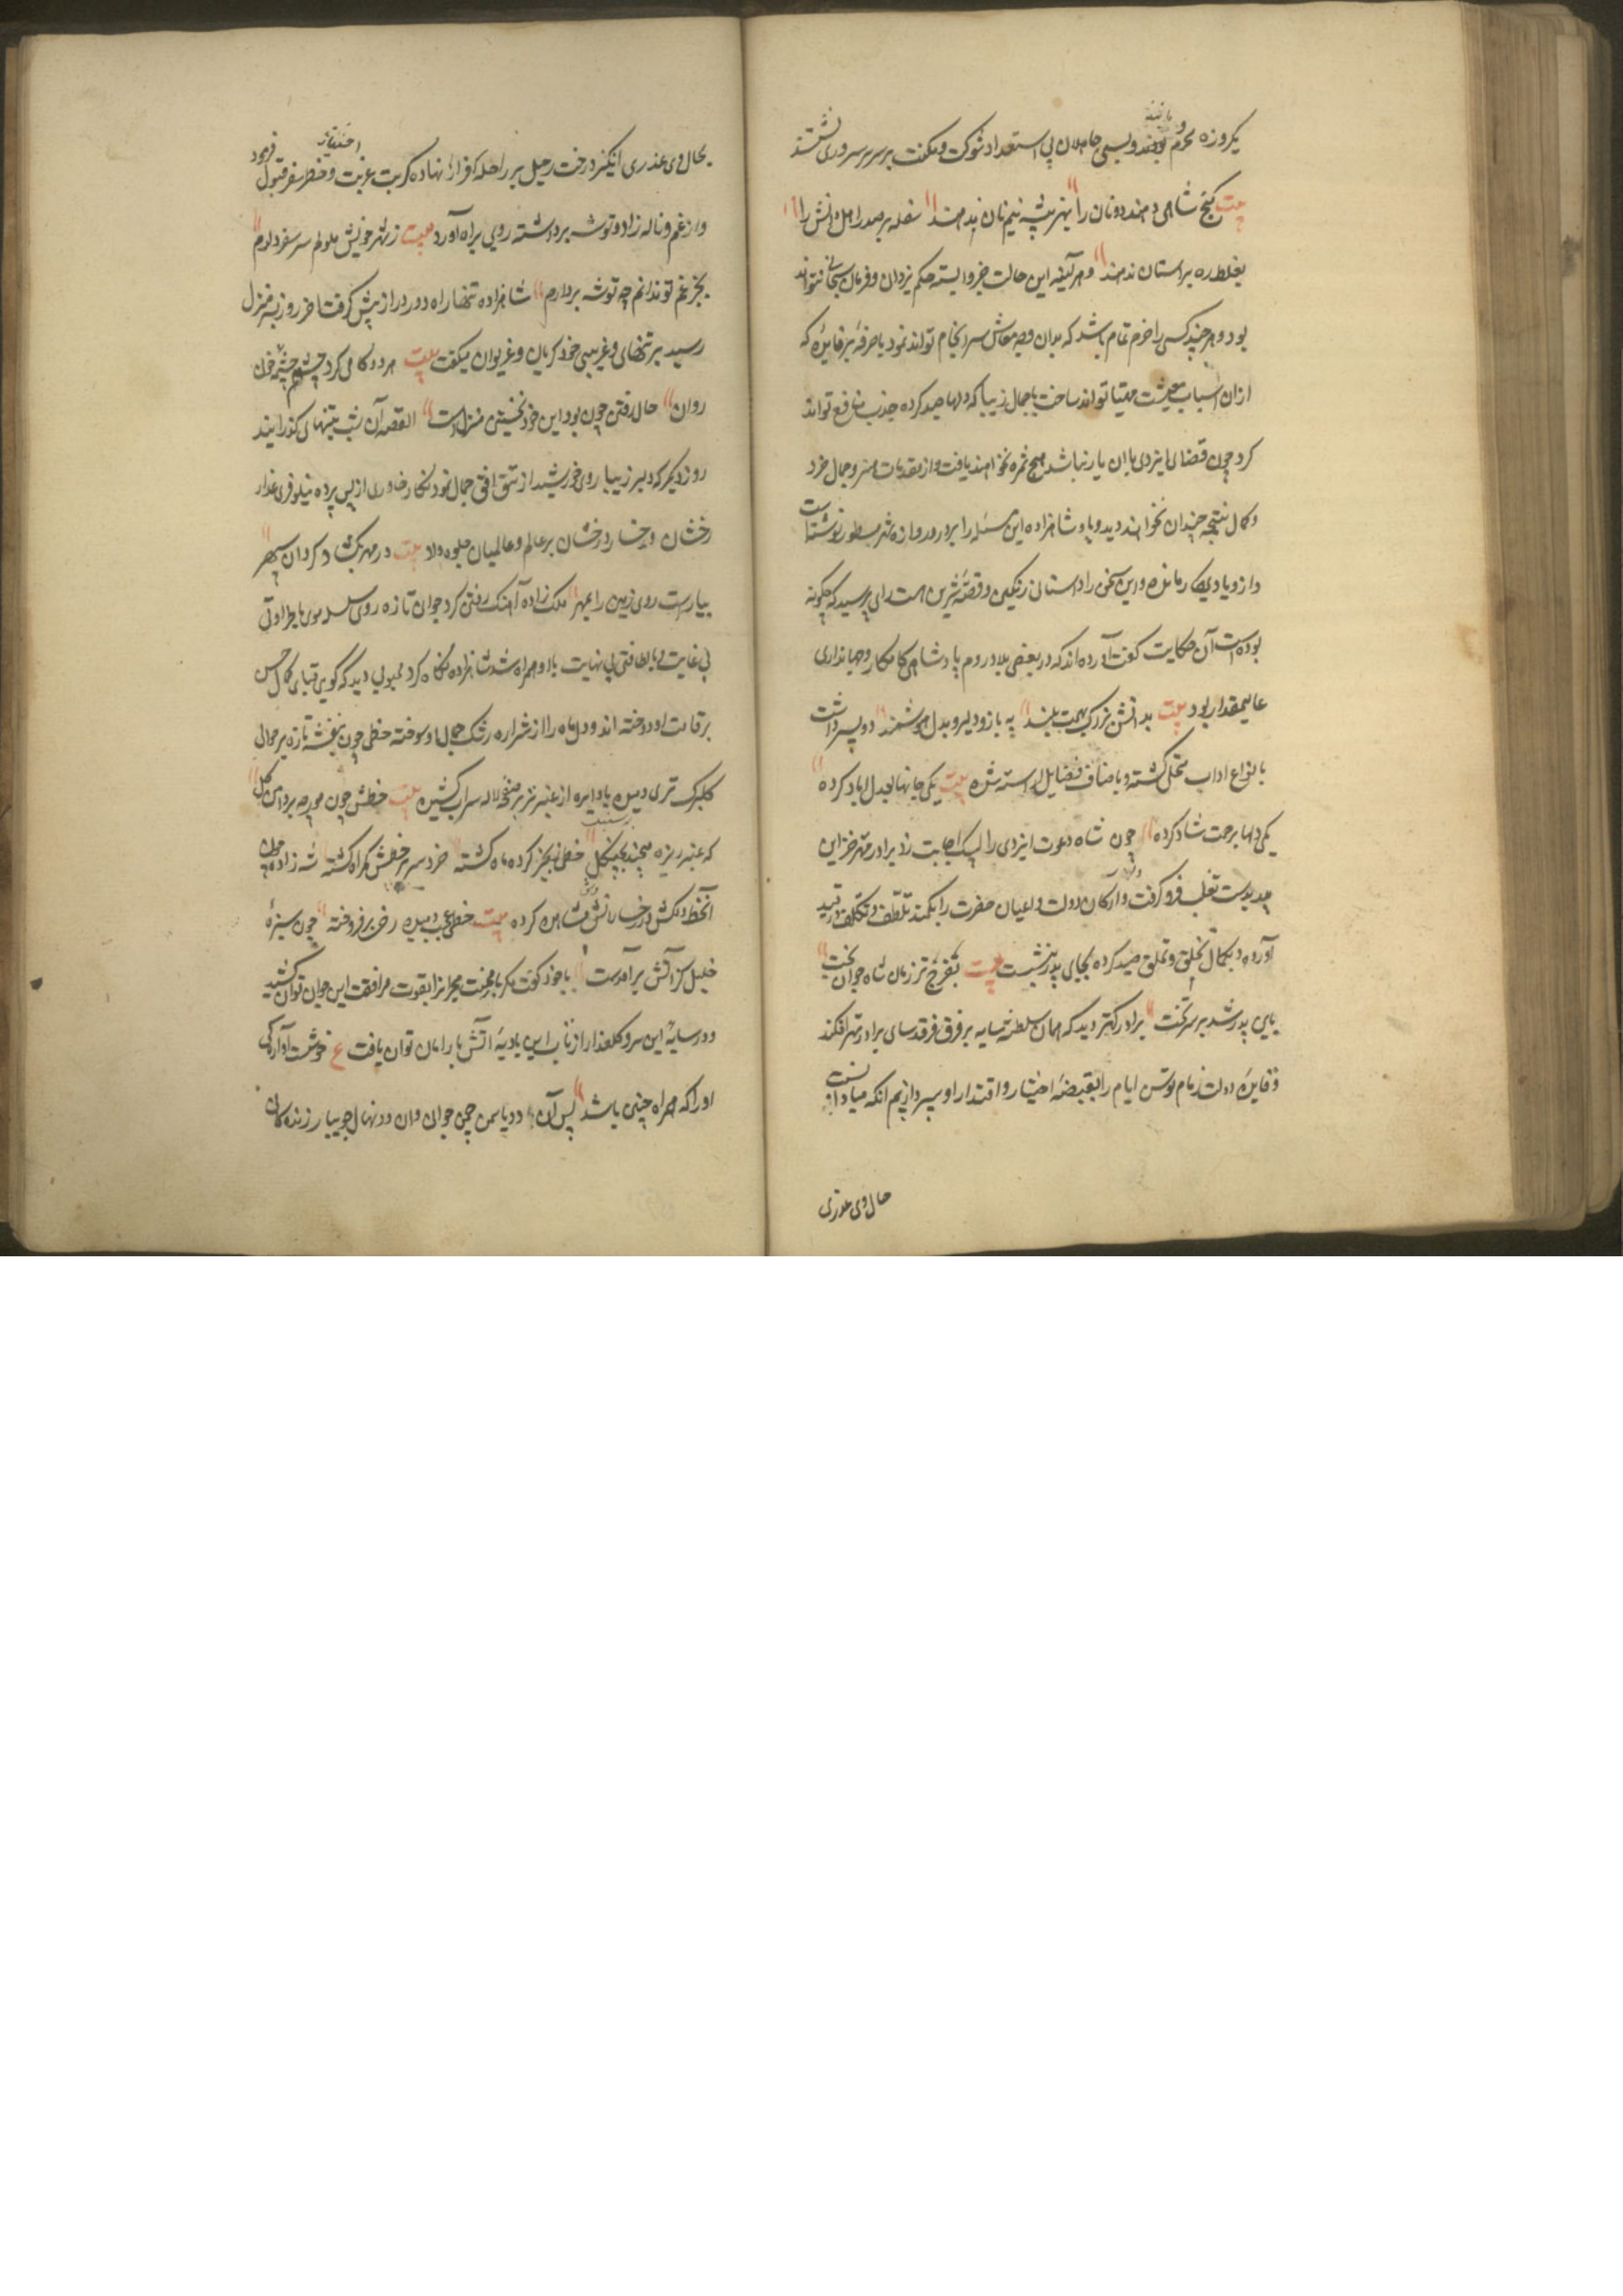 یکروزه محروم و بسی جاهلان بی استعداد شوکت و مکنت بر سریر سروری نشستند
بیت گنج شاهی دهند دونان را بهنر پیشه نیم نان ندهند سفله بر صدر اهل دانش را
بغلط ره بر آستان ندهند و هر آینه این حالت جز وابسته حکم یزدان و فرمان سبحانی نتواند
بود و هر چند کسی را خرد تمام باشد که بدان وجه معاش سرانجام تواند نمود یا حرفهٔ پرفایده که
ازان اسباب معیشت مهیا تواند ساخت یا جمال زیبا که دلها صید کرده جذب منافع تواند
کرد چون قضای ایزدی با ان یار نباشد هیچ ثمره نخواهند یافت و از مقدمات هنر و جمال خرد
و کمال نتیجه چندان نخواهند دید و پادشاهزاده این مسئله را بر در دروازه شهر مسطور نوشتست
و ازو یادگار مانده و این سخن را داستانی رنگین و قصهٔ شیرین است رای پرسید که چگونه
بوده است آن حکایت گفت آورده اند که در بعضی بلاد روم پادشاهی کامکار و جهانداری
عالیمقدار بود بیت بدانش بزرگ بهمت بلند به بازو دلیر و بدل هوشمند دو پسر داشت
بانواع اداب متحلی گشته و باصناف فضایل آراسته شده بیت یکی جانها بعدل اباد کرده
یکی دلها برحمت شاد کرده چون شاه دعوت ایزدی را لبیک اجابت زد برادر مهتر خزاین
پدر بدست تغلب فرو گرفت و ارکان دولت و اعیان حضرت را بکمند تلطف و تکلف در قید
آورده و بکمال تخلق و تملق صید کرده بجای پدر بنشست بیت بفرخ ترین زمان شاه جوان بخت
بجای پدر شد بر سر تخت برادر کهتر دید که همای سلطنت سایه بر فرق فرقدسای برادر مهتر افکند
و قاید دولت زمام توسن ایام را بقبضهٔ اختیار و اقتدار او سپرد از بیم انکه مبادا نسبت
حال وی غدری
بحال وی غدری انگیزد رخت رحیل بر راحله افراز نهاده کربت غربت و خطر سفر قبول فرمود
و از غم و ناله زاد و توشه برداشته روی براه آورد بیت ز شهر خویش ملولم سر سفر دارم
بجز غم تو ندانم چه توشه بردارم شاهزاده تنها راه دور دراز پیش گرفت آخر روز بمنزل
رسید بر تنهای و غریبی خود گریان و غریوان میگفت بیت هر دو گامی کرد چشمم چشمه خون
روان حال رفتن چون بود این خود نخستین منزل است القصه آن شب بتنهای گذرانید
روز دیگر که دلبر زیبا روی خورشید از تتق افق جمال نمود نگار خاوری از پس پرده نیلوفری عذار
رخشان و رخسار درخشان بر عالم و عالمیان جلوه داد بیت در مهر بگشاد گردان سپهر
بیاراست روی زمین را بمهر ملک زاده آهنگ رفتن کرد جوان تازه روی سلسله موی با طراوتی
بی غایت و با لطافتی بی نهایت با او همراه شد شاهزاده نگاه کرد محبوبی دید که گویی قبای کمال حسن
بر قامت او دوخته اند و دل ماه را از شراره رشک جمال او سوخته خطی چون بنفشه تازه بر حوالی
گلبرگ تری دمیده یا دایره از عنبر تر بر صفحه لاله سیراب کشیده بیت خطش چون مورچه بر دامن گل
که عنبر ریزه میچیند بچنگل خطی انگیز کرده ماه گشته خرد سر بر خطش گمراه گشته شه زاده چون
آنخط دلکش در رخسار آتش وش مشاهده کرده بیت خطی عجب دمیده رخی برفروخته چون سبزهٔ
خلیل کز آتش برآمدست با خود گفت مگر بار محنت هجران را بقوت مرافقت این جوان توان کشید
و در سایهٔ این سرو گلعذار از تاب این بادیهٔ آتش بار امان توان یافت ع خوشست آوارگی
او را که همراه چنین باشد پس آن دو یاسمن چمن جوانی وان دو نهال جویبار زندگانی